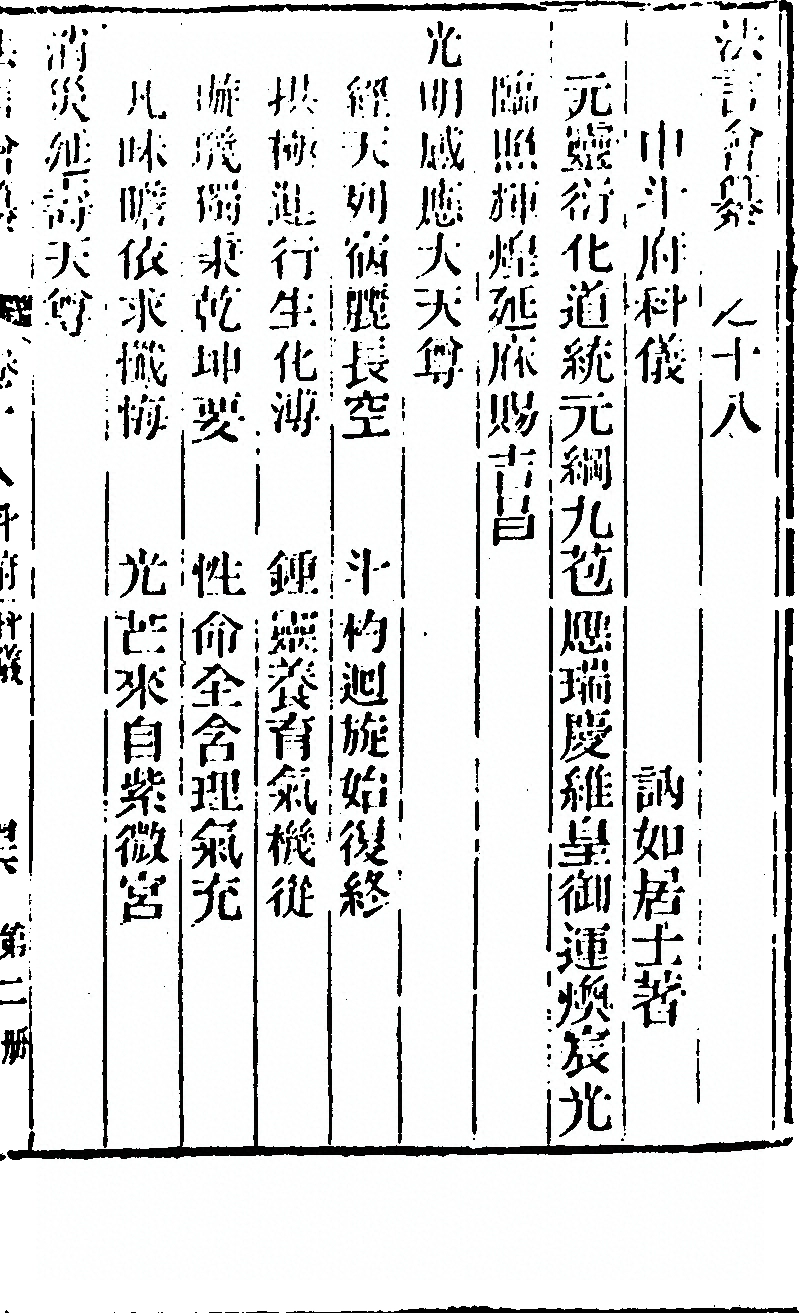 法言會纂　之十八
中斗府科儀　訥如居士著
元靈衍化道統元綱九苞應瑞慶維皇御運煥宸光
臨照輝煌延庥賜吉昌
光明感應大天尊
經天列宿麗長空　斗杓迴旋始復終
拱極進行生化溥　鍾靈養育氣機從
璇璣獨秉乾坤要　性命全含理氣充
凡昧瞻依求懺悔　光芒來自紫微宮
消災延壽天尊
八斗府科儀　第二册